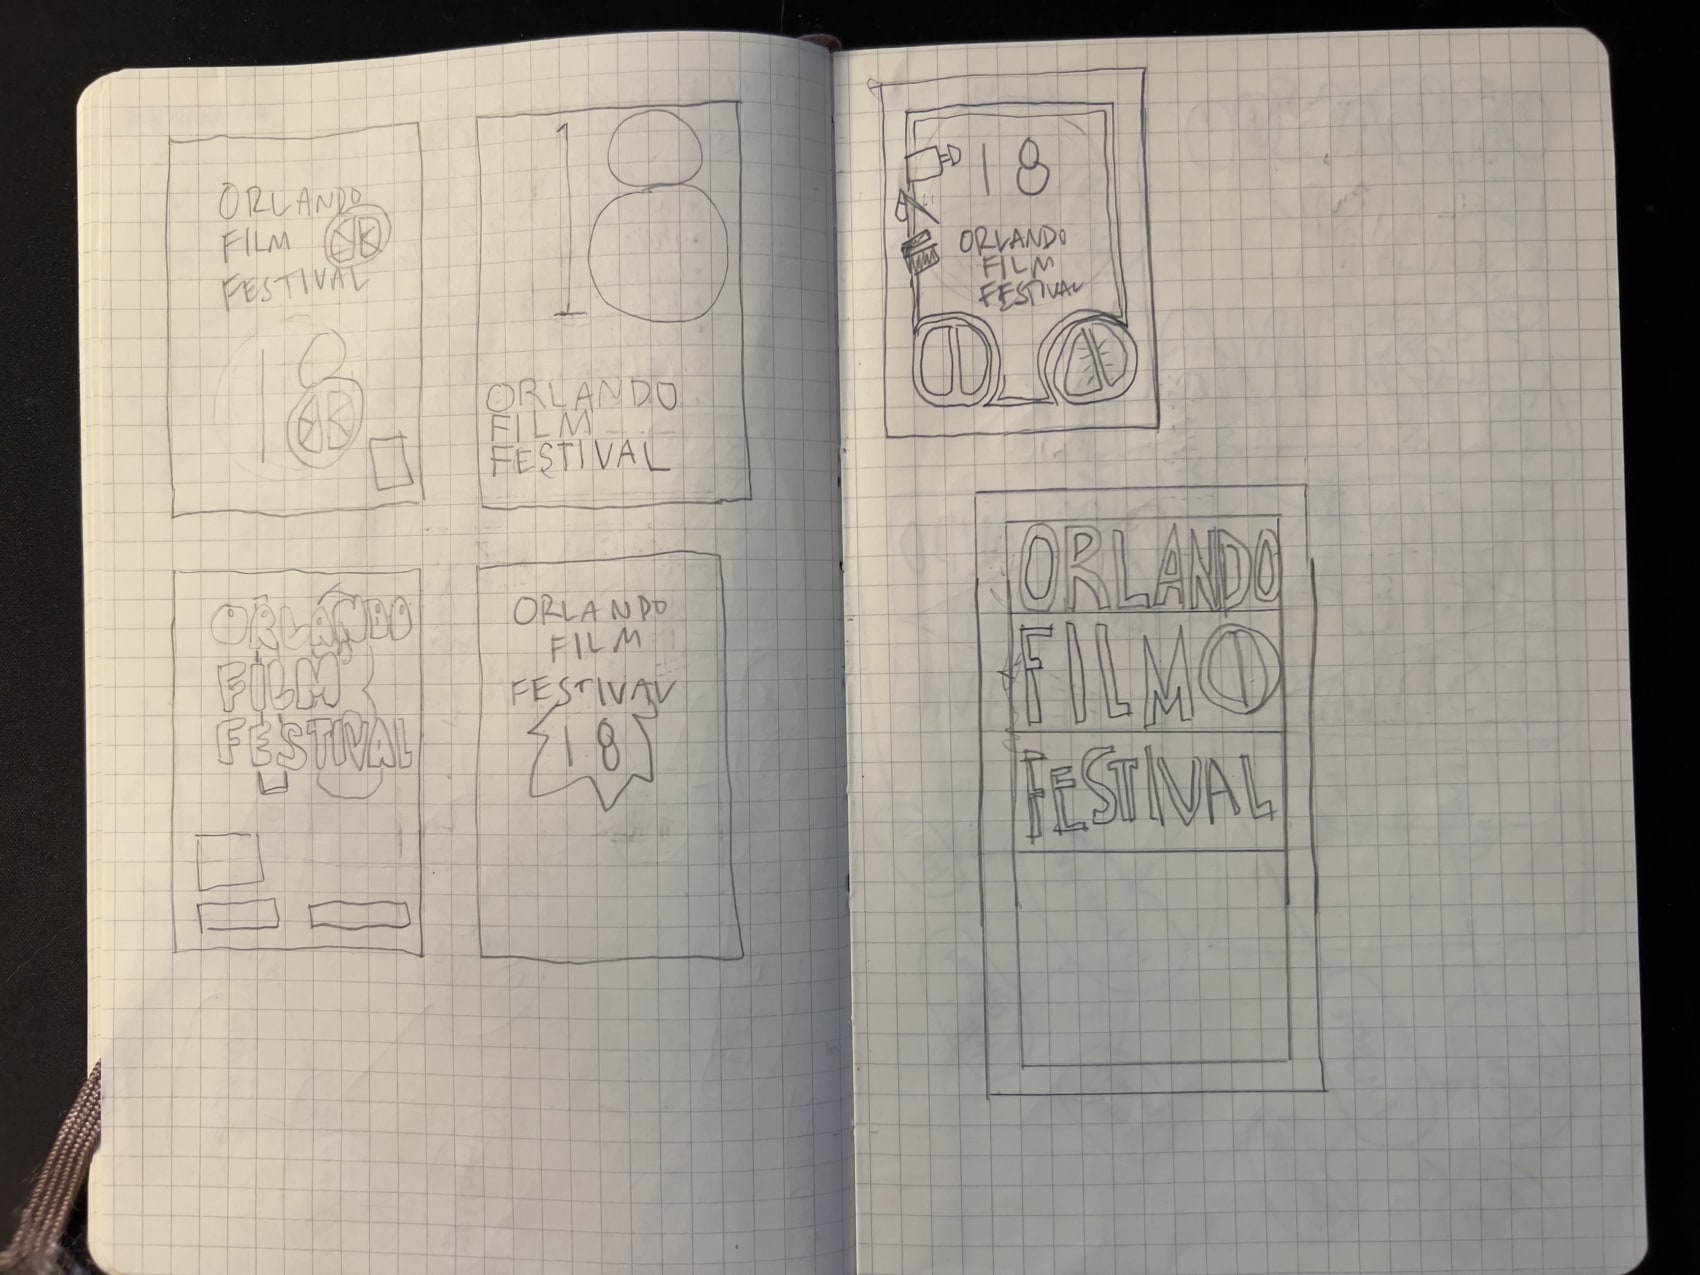 ORLANDO
FILM
FESTIVAL
18
18
ORLANDO
FILM
FESTIVAL
ORLANDO
FILM
FESTIVAL
ORLANDO
FILM
FESTIVAL
18
18
ORLANDO
FILM
FESTIVAL
ORLANDO
FILM
FESTIVAL